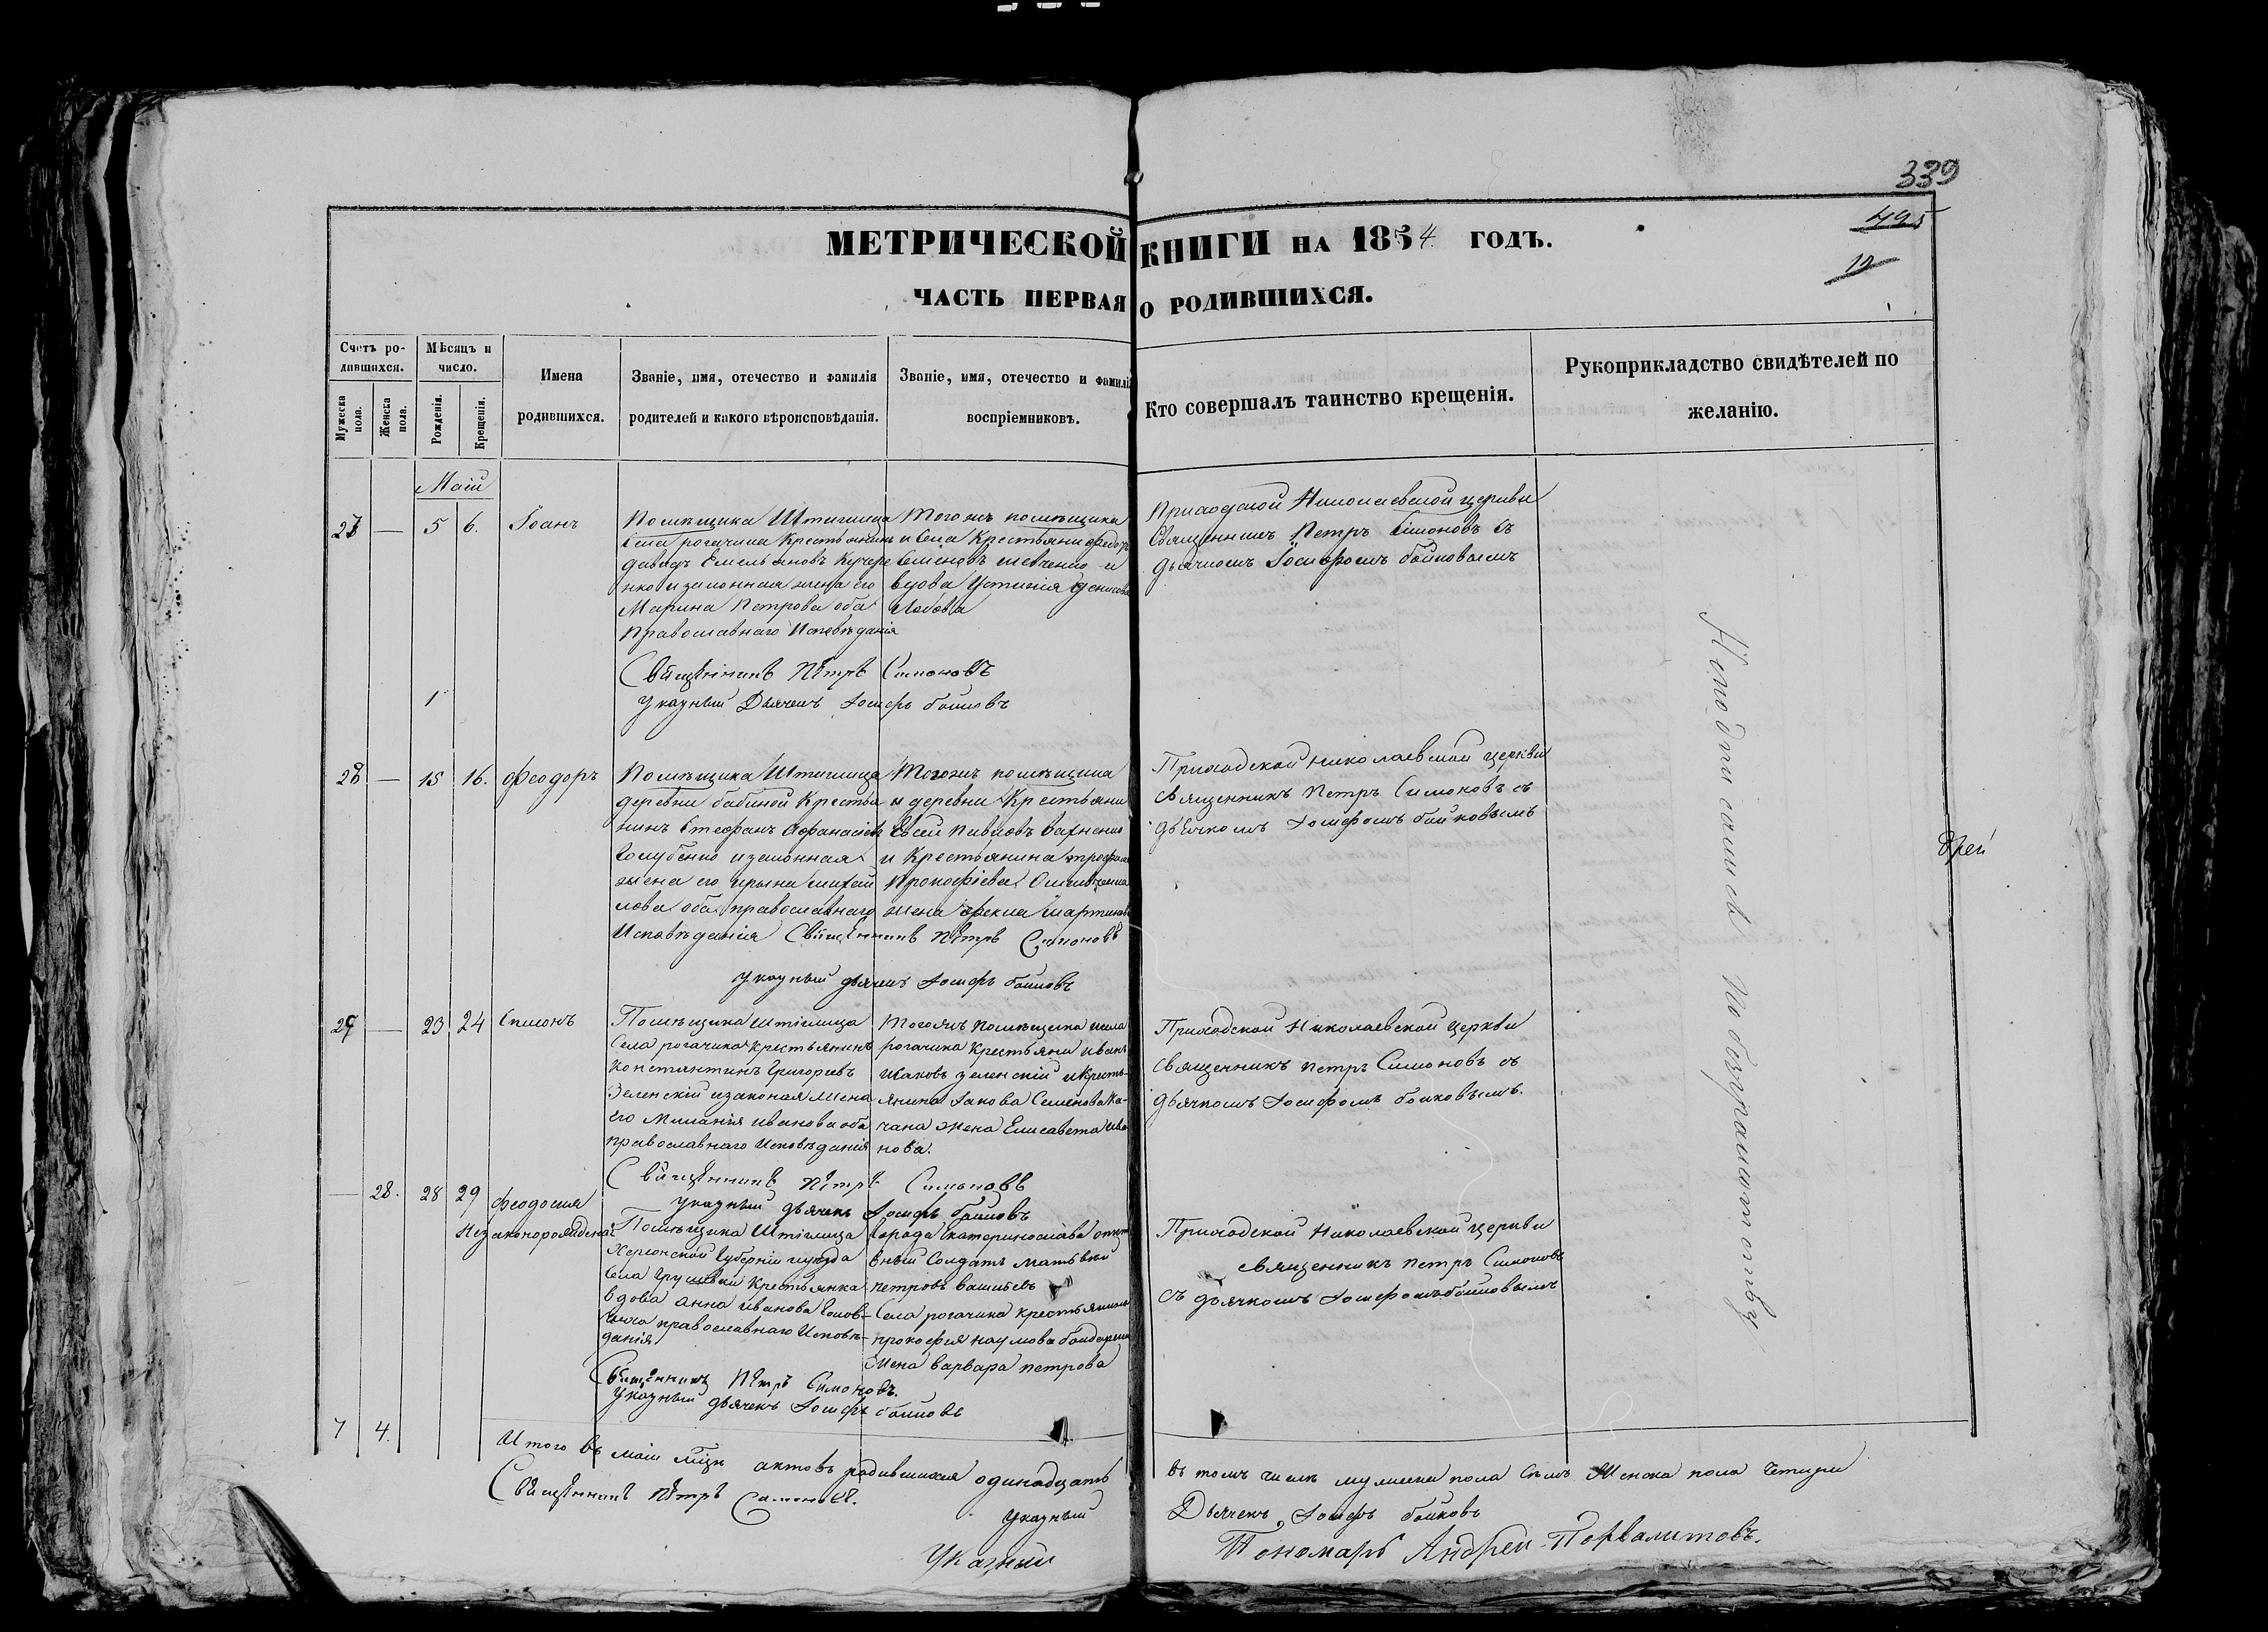 339
495
12
МЕТРИЧЕСКОЙ КНИГИ НА 1854 ГОДЪ.
ЧАСТЬ ПЕРВАЯ О РОДИВШИХСЯ.
Счетъ ро-
дившихся.
Мужеска пола.
Женска пола.
Мѣсяцъ и
число.
Рожденія.
Крещенія.
Имена
родившихся.
Званіе, имя, отечество и фамилія
родителей и какого вѣроисповѣданія.
Званіе, имя, отечество и фамилія
воспріемниковъ.
Кто совершалъ таинство крещенія.
Рукоприкладство свидѣтелей по
желанію.
Маій
27 — 5 6. Іоанъ
Помѣщика Штиглица
Села рогачика Крестьянинъ
давидъ Емельяновъ Кучере
нко и законная жена его
Марина Петрова оба
Православнаго Исповѣданія
Тогожъ помѣщика
и Села Крестьяни федоръ
Семеновъ шевченко и
вдова Устинія Денисова
Лобова
Приходской Николаевской церкви
Священникъ Петръ Симоновъ съ
дьячкомъ Іосифомъ бойковымъ
Священникъ Петръ Симоновъ
указный Дьячекъ Іосифъ бойковъ
1
28 — 15 16. Феодоръ
Помѣщика Штиглица
деревни бабиной Крестья
нинъ Стефанъ Афанасіевъ
Голубенко изаконная
жена его ирына михай
лова оба православнаго
Исповѣданія
Тогожъ помѣщика
и деревни Крестьяни
и Крестьянина трофима
Прокофіева
жена фекла мартинова
Приходской Николаевской церкви
священникъ Петръ Симоновъ съ
дьячкомъ Іосифомъ бойковымъ
Священникъ Петръ Симоновъ
указный дьячекъ Іосифъ бойковъ
29 — 23 24 Симонъ
Помѣщика штіглица
Села рогачика крестьянинъ
Константинъ Григоріевъ
Зеленскій изаконая жена
его Миланія иванова оба
православнаго Исповѣданія
Тогожъ Помѣщика исела
рогачика Крестьяни иванъ
Исаковъ зеленскій икресть-
янина Іакова Семенова Ка-
чана жена Елисавета Ива
нова.
Приходской Николаевской церкви
священникъ петръ Симоновъ съ
дьячкомъ Іосифомъ бойковымъ.
Священникъ Петръ Симоновъ
указный дьячекъ Іосифъ бойковъ
— 28. 28 29 Феодосия
Незаконорожденая
Помѣщика Штіглица
Херсонской Губерніи иуезда
Села Грушевки Крестьянка
вдова анна иванова
православнаго Исповѣ-
данія
Города Екатеринослава
Солдатъ матвѣй
петровъ
Села рогачика крестьянина
прокофия наумова бондаренка
жена варвара петрова
Приходской Николаевской церкви
священникъ петръ Симоновъ
съ дьячкомъ Іосифомъ бойковымъ
Священникъ Петръ Симоновъ.
Указный дьячекъ Іосифъ бойковъ
7 4.
Итого въ маіи мѣцѣ актовъ родившихся одинадцать
въ томъ числѣ мужеска пола Семь Женска пола Четыри
Священникъ Петръ Симоновъ.
указный
Дьячекъ Іосифъ бойковъ
Указный
Пономарь Андрей
дрей